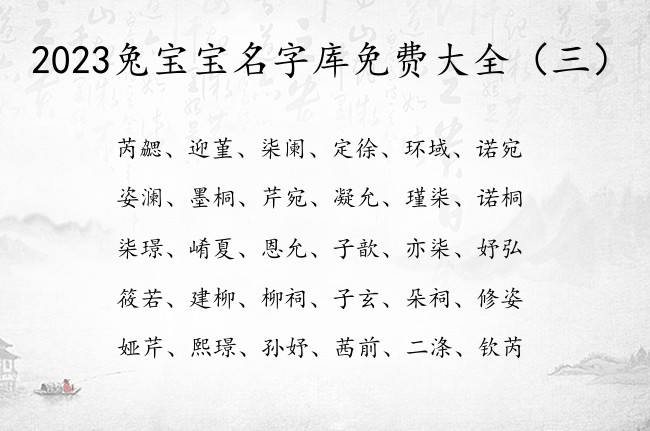 2023兔宝宝名字库免费大全（三）
芮勰、迎堇、柒阑、定徐、环域、诺宛
姿澜、墨桐、芹宛、凝允、瑾柒、诺桐
柒璟、崤夏、恩允、子歆、亦柒、妤弘
筱若、建柳、柳祠、子玄、朵祠、修姿
娅芹、熙璟、孙妤、茜前、二涤、钦芮